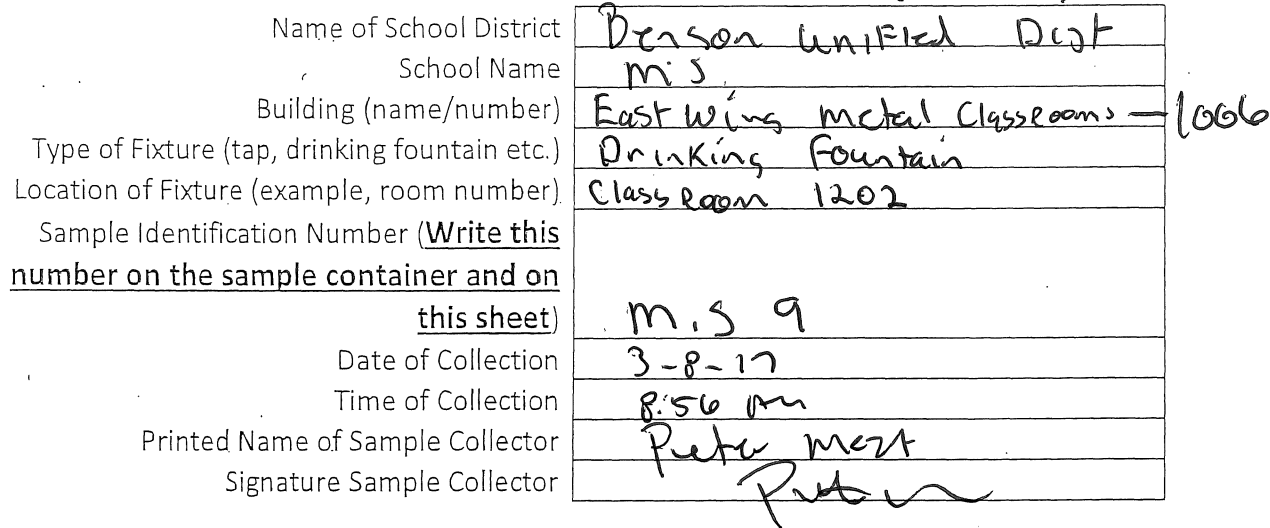 Name of School District Benson Unified Dist
School Name M.S.
Building (name/number) East Wing Metal Classrooms - 1006
Type of Fixture (tap, drinking fountain etc.) Drinking Fountain
Location of Fixture (example, room number) Class Room 1202
Sample Identification Number (Write this
number on the sample container and on
this sheet) M.S 9
Date of Collection 3-8-17
Time of Collection 8:56
Printed Name of Sample Collector
Signature Sample Collector